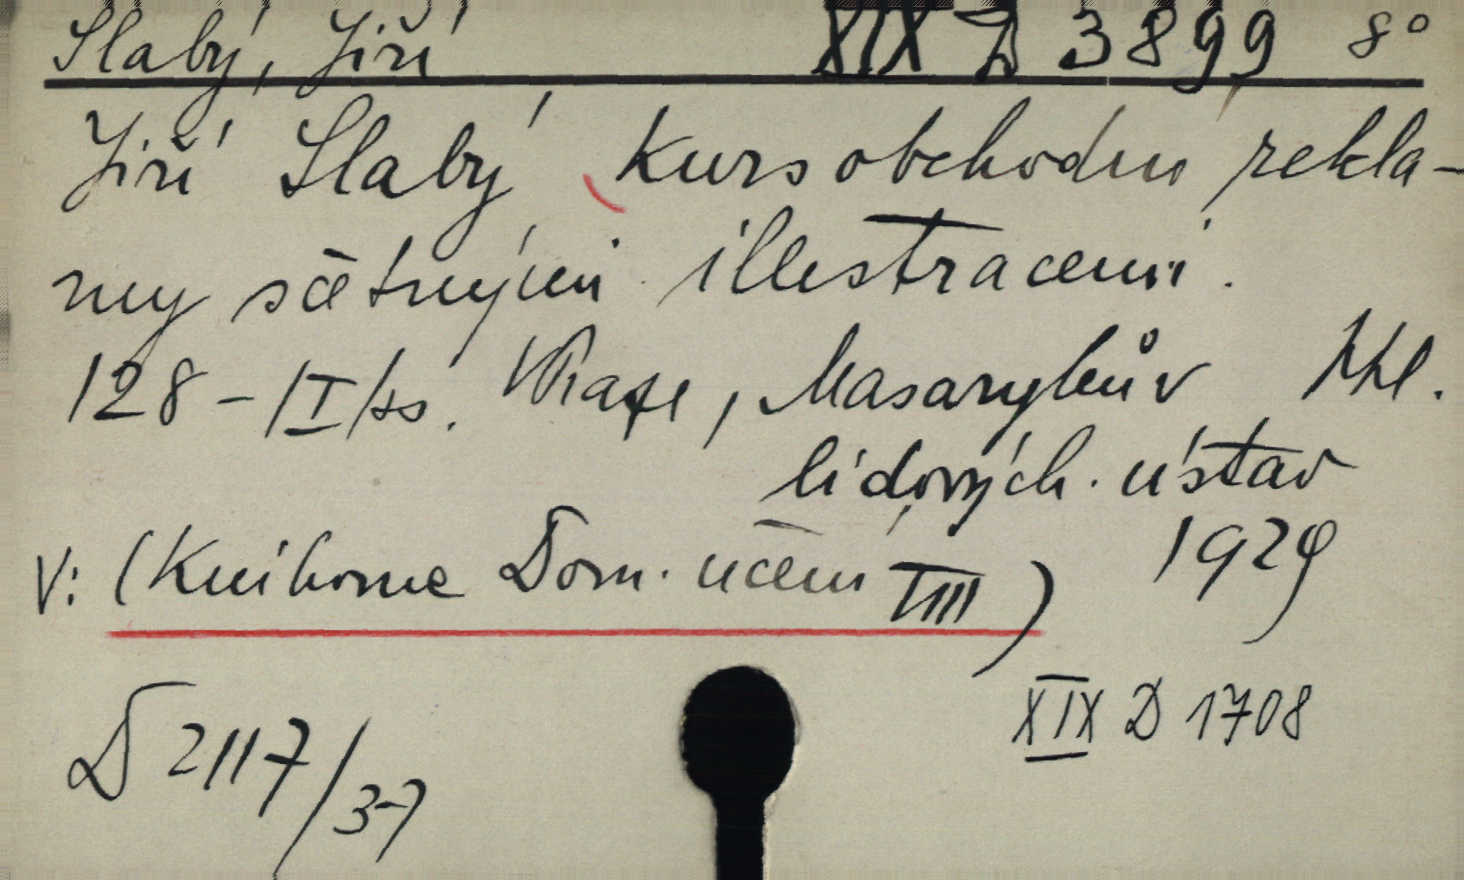 Slabý, Jiří XIX D 3899 8°
Jiří Slabý Kurs obchodní rekla-
my sčetnými illustracemi.
128-/I/ss. Praze, Masarykův
lidových. ústav
1929
V: (Knihovna Dom. učení VIII)
XIX D 1708
D 2117/37